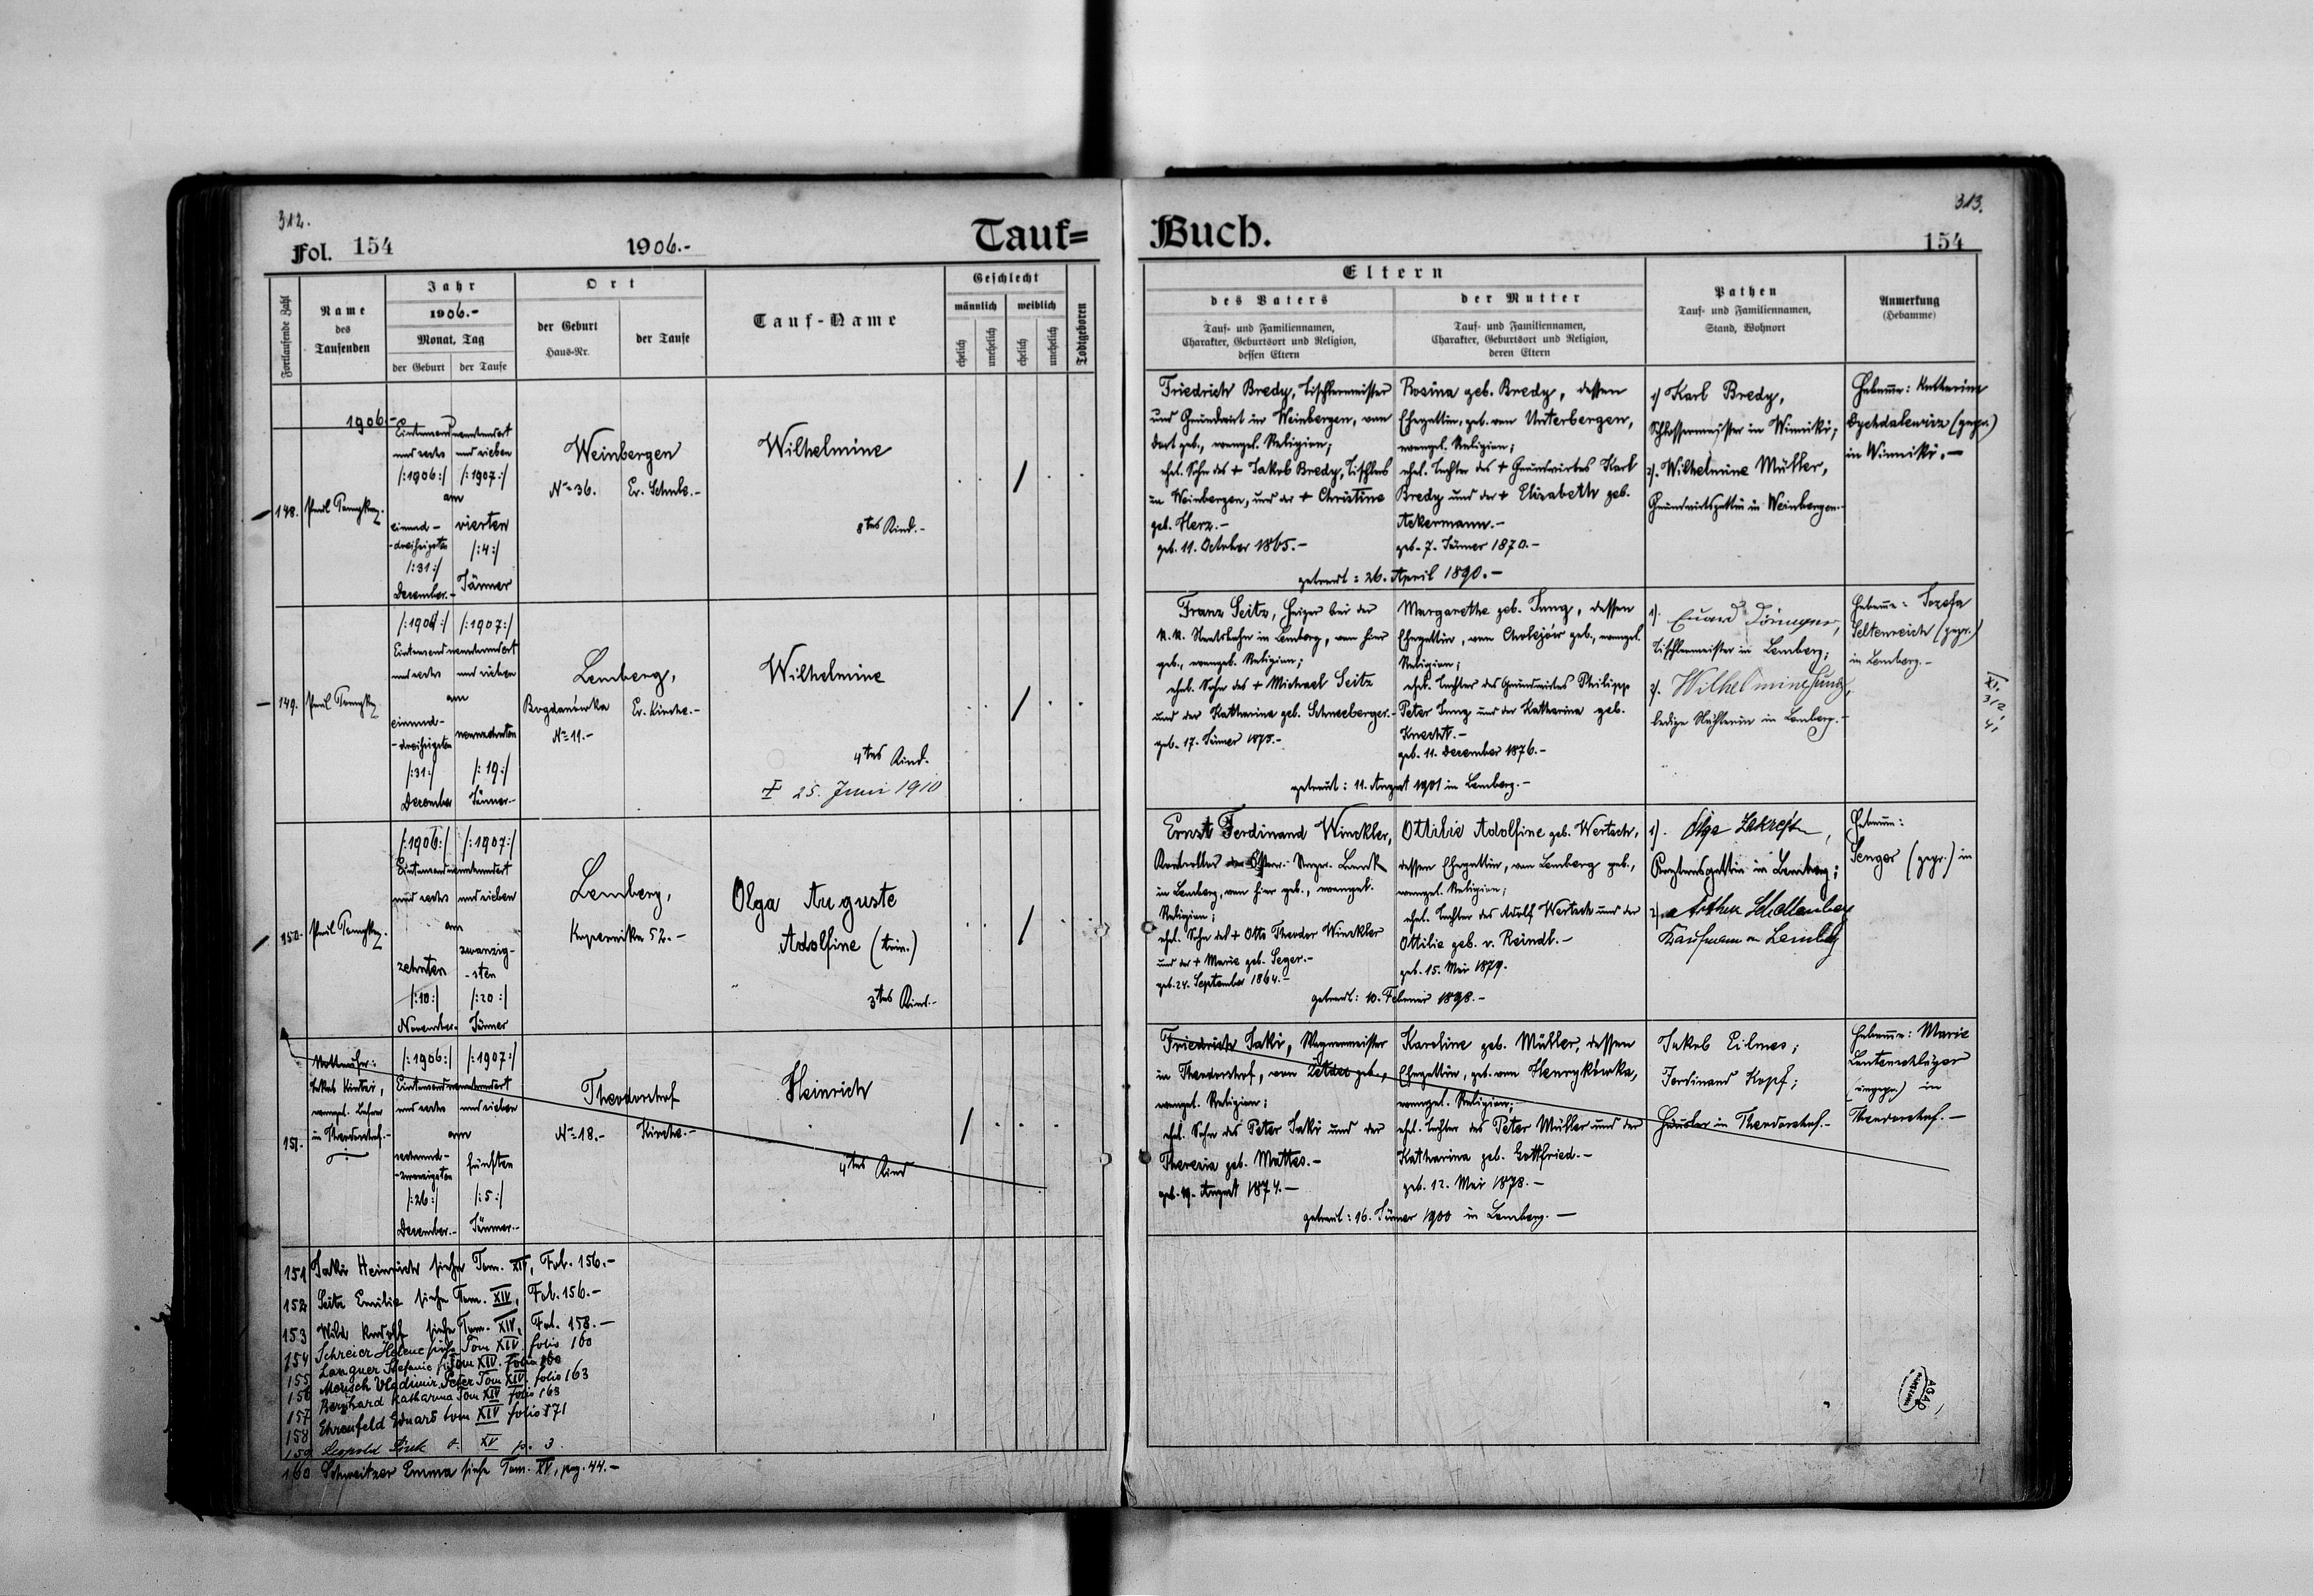 312.
Fol. 154
1906.-
Tauf=
Fortlaufende Zahl
Name
des
Taufenden
Jahr
1906.-
Monat, Tag
der Geburt
der Taufe
Ort
der Geburt
Haus-Nr.
der Taufe
Tauf-Name
Geschlecht
männlich
weiblich
ehelich
unehelich
ehelich
unehelich
Todtgeboren
1906.-
148.
Eintausendneunhundert
und sechs
und sieben
/:1906:/ /:1907:/
am
einund-
-dreißigsten
/:31:/
December.-
vierten
/:4:/
Jänner
Weinbergen
No 36.
Ev. Schule.-
Wilhelmine
8tes Kind.-
149.
/:1906:/ /:1907:/
Eintausendneunhundert
und sechs
und sieben
am
einund-
-dreißigsten
/:31:/
December
neunzehnten
/:19:/
Jänner.-
Lemberg,
Bogdanówka
No 11.-
Ev. Kirche.-
Wilhelmine
4tes Kind.
25. Juni 1910
150.
/:1906:/ /:1907:/
Eintausendneunhundert
und sechs
und sieben
am
zehnten
/:10:/
November.
zwanzig-
-sten
/:20:/
Jänner
Lemberg,
Kopernika 52.-
Olga Auguste
Adolfine
3tes Kind.-
151.
evangel. Lehrer
in Theodorshof.-
/:1906:/ /:1907:/
Eintausendneunhundert
und sechs
und sieben
am
sechsund-
-zwanzigsten
/:26:/
December.-
fünften
/:5:/
Jänner.-
Theodorshof
No 18.-
Kirche.-
Heinrich
4tes Kind
151 Jaki Heinrich siehe Tom. XIV, Fol. 156.-
152 Seitz Emilie siehe Tom. XIV, Fol. 156.-
153 Wild Rudolf siehe Tom. XIV, Fol. 158.-
154 Schreier Helene siehe Tom XIV folio 160
155 Langner Stefanie Tom XIV. folio 160
156 Mensch Vladimir Peter Tom XIV folio 163
157 Bernhard Katharina Tom XIV folio 163
158 Ehrenfeld Eduard tom XIV folio 171
159 Leopold XV p. 3.
160 Schweitzer Emma siehe Tom. XV, pag. 44.-
313.
Buch.
154
Eltern
des Vaters
Tauf- und Familiennamen,
Charakter, Geburtsort und Religion,
dessen Eltern
der Mutter
Tauf- und Familiennamen,
Charakter, Geburtsort und Religion,
deren Eltern
Pathen
Tauf- und Familiennamen,
Stand, Wohnort
Anmerkung
(Hebamme)
Friedrich Bredy, Tischlermeister
und Grundwirt in Weinbergen, von
dort geb., evangel. Religion;
ehel. Sohn des + Jakob Bredy, Tischlers
in Weinbergen, und der + Christine
geb. Herz.-
geb. 11. October 1865.-
Rosina geb. Bredy, dessen
Ehegattin, geb. von Unterbergen,
evangel. Religion;
ehel. Tochter des + Grundwirtes Karl
Bredy und der + Elisabeth geb.
Ackermann.-
geb. 7. Jänner 1870.-
getraut: 26. April 1890.-
1) Karl Bredy,
Schlossermeister in Winniki;
2). Wilhelmine Müller,
Grundwirtsgattin in Weinbergen.-
Hebamme: Katharina
(gepr.)
in Winniki.-
Franz Seitz, Heizer bei der
K.K. Staatsbahn in Lemberg, von hier
geb., evangel. Religion;
ehel. Sohn des + Michael Seitz
und der Katharina geb. Schneeberger.-
geb. 17. Jänner 1875.-
Margarethe geb. Jung, dessen
Ehegattin, von Cholejów geb., evangel.
Religion;
ehel. Tochter des Grundwirtes Philipp
Peter Jung und der Katharina geb.
Knecht.-
geb. 11. December 1876.-
getraut: 11. August 1901 in Lemberg.-
1).
Tischlermeister in Lemberg;
2). Wilhelmine Jung,
ledige Näherin in Lemberg.-
Hebamme: Josefa
Seltenreich (gepr.)
in Lemberg.-
XI.
312,
4,
Ernst Ferdinand Winckler,
in Lemberg, von hier geb., evangel.
Religion;
ehel. Sohn des + Otto Theodor Winckler
und der + Marie geb. Seger.-
geb. 24. September 1864.-
Ottilie Adolfine geb. Wertsch,
dessen Ehegattin, von Lemberg geb.,
evangel. Religion;
ehel. Tochter des Adolf Wertsch und der
Ottilie geb. v. Reindl.-
geb. 15. Mai 1879.
getraut: 10. Februar 1898.-
1). Olga
in Lemberg;
2) Arthur
Kaufmann in Lemberg
Hebamme:
Senger (gepr.) in
Friedrich Jaki, Wagnermeister
in Theodorshof, von geb.,
evangel. Religion;
ehel. Sohn des Peter Jaki und der
Theresia geb. Mattes.-
geb. 19. August 1874.-
Karoline geb. Müller, dessen
Ehegattin, geb. von Henrykówka,
evangel. Religion;
ehel. Tochter des Peter Müller und der
Katharina geb. Gottfried.-
geb. 12. Mai 1878.-
getraut: 16. Jänner 1900 in Lemberg.-
Jakob Eilmes;
Ferdinand Kopf;
in Theodorshof.-
Hebamme: Marie
Lautenschläger
(ungepr.) in
Theodorshof.-
AGAD